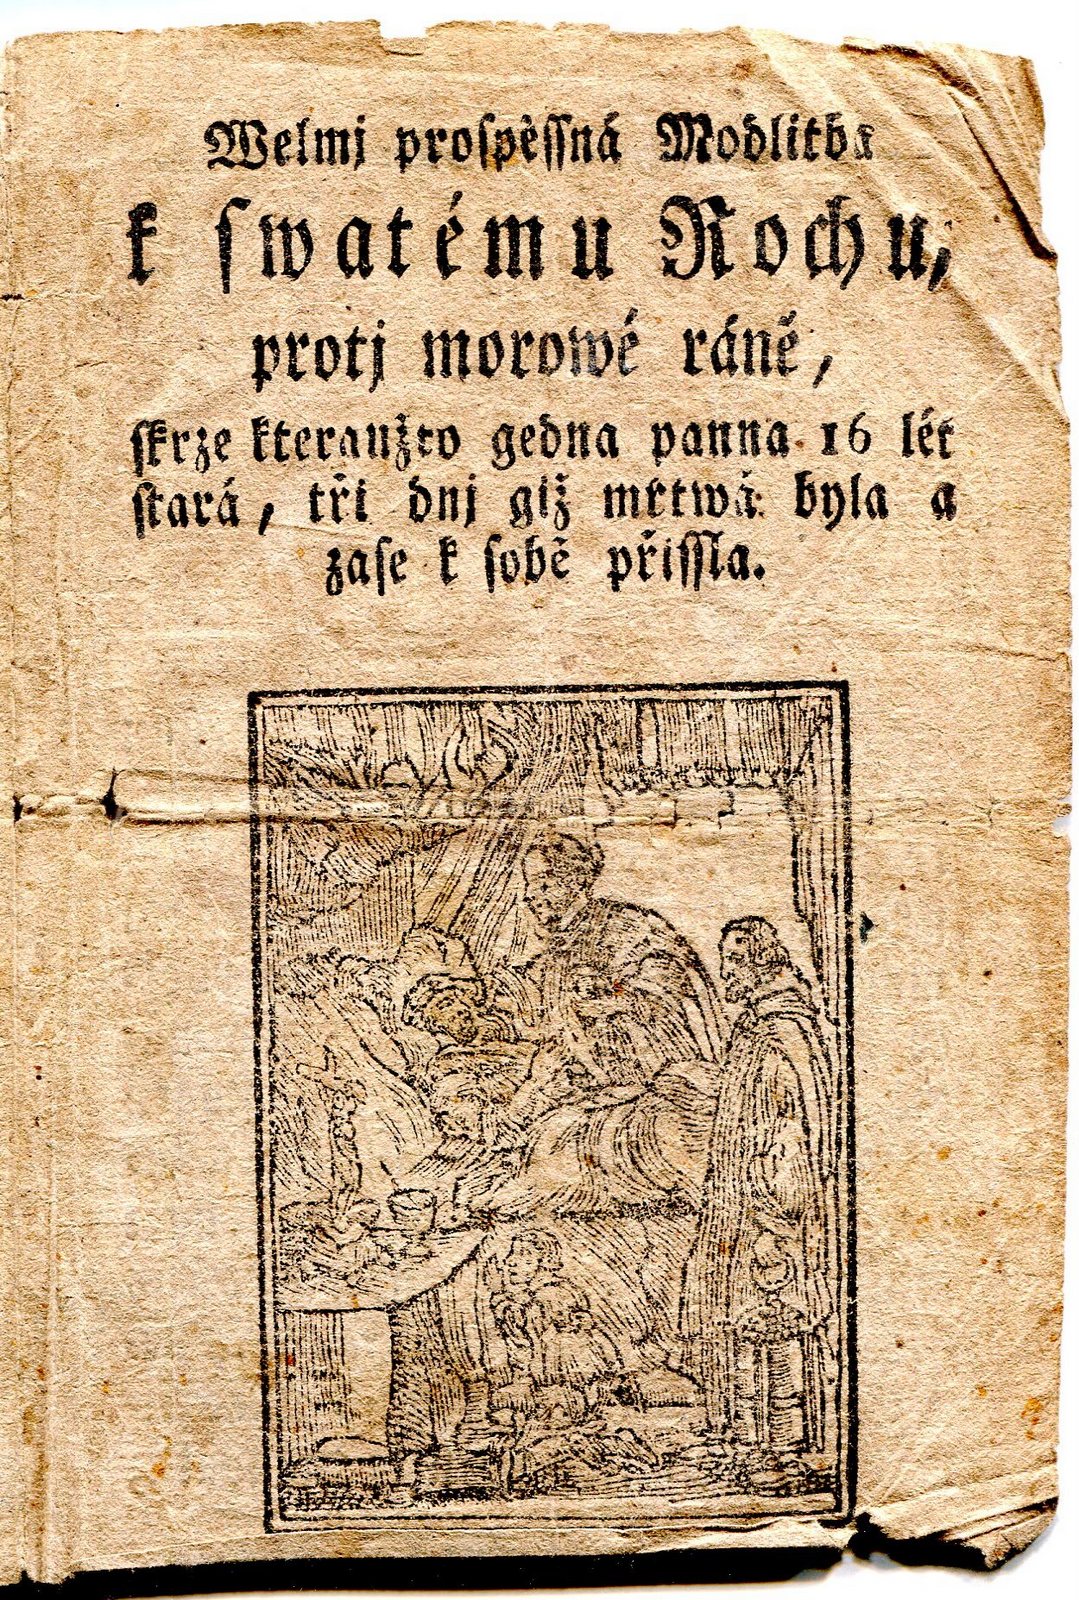 Welmj proſpěſſná Modlitba
k ſwatému Rochu,
protj morowé ráně,
ſkrze kteraužto gedna panna 16 lét
ſtará, tři dnj giž mrtwá byla a
zaſe k ſobě přiſſla.